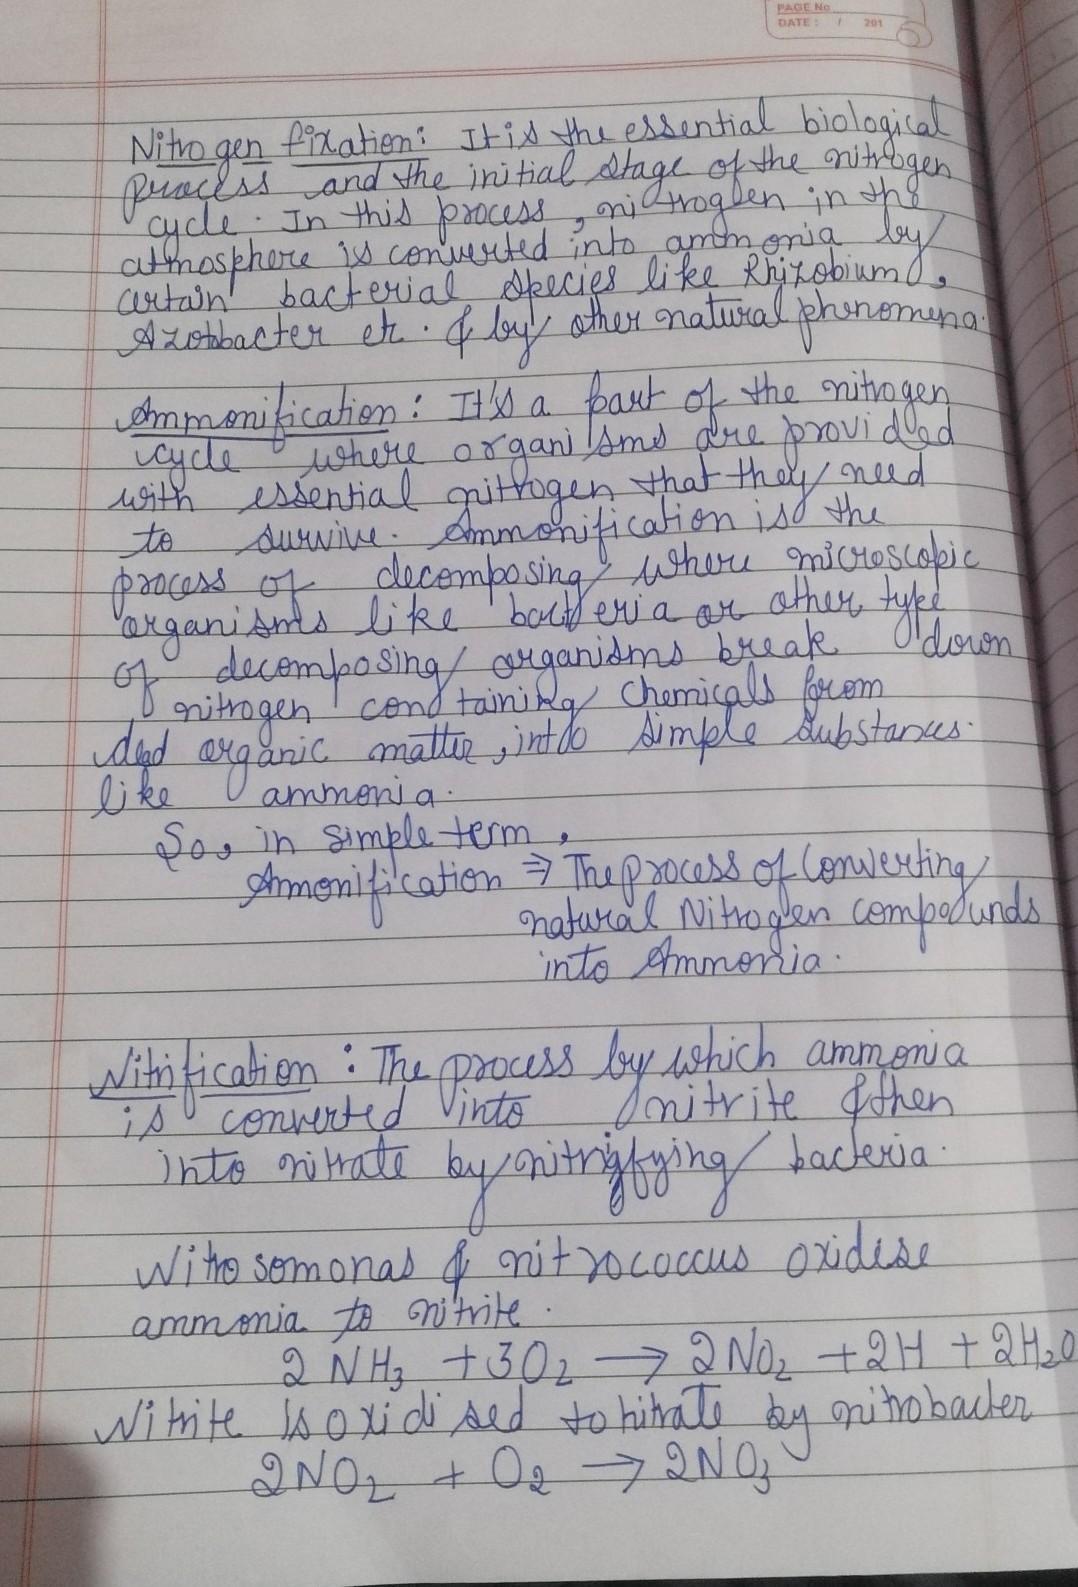 PAGE No
DATE : / 201
5
Nitrogen fixation: It is the essential biological
process and the initial stage of the nitrogen
cycle. In this process, nitrogen in the
atmosphere is converted into ammonia by
certain bacterial species like Rhizobium,
Azotobacter etc. & by other natural phenomena.
Ammonification: It's a part of the nitrogen
cycle where organisms are provided
with essential nitrogen that they need
to survive. Ammonification is the
process of decomposing where microscopic
organisms like bacteria or other type
of decomposing organisms break down
nitrogen containing chemicals from
dead organic matter, into simple substances.
like ammonia.
So, in simple term,
Ammonification ⇒ The process of Converting
natural Nitrogen compounds
into Ammonia.
Nitrification : The process by which ammonia
is converted into nitrite & then
into nitrate by nitrifying bacteria.
Nitrosomonas & nitrococcus oxidise
ammonia to nitrite.
2 NH₃ + 3O₂ → 2NO₂ + 2H + 2H₂O
Nitrite is oxidised to nitrate by nitrobacter
2NO₂ + O₂ → 2NO₃